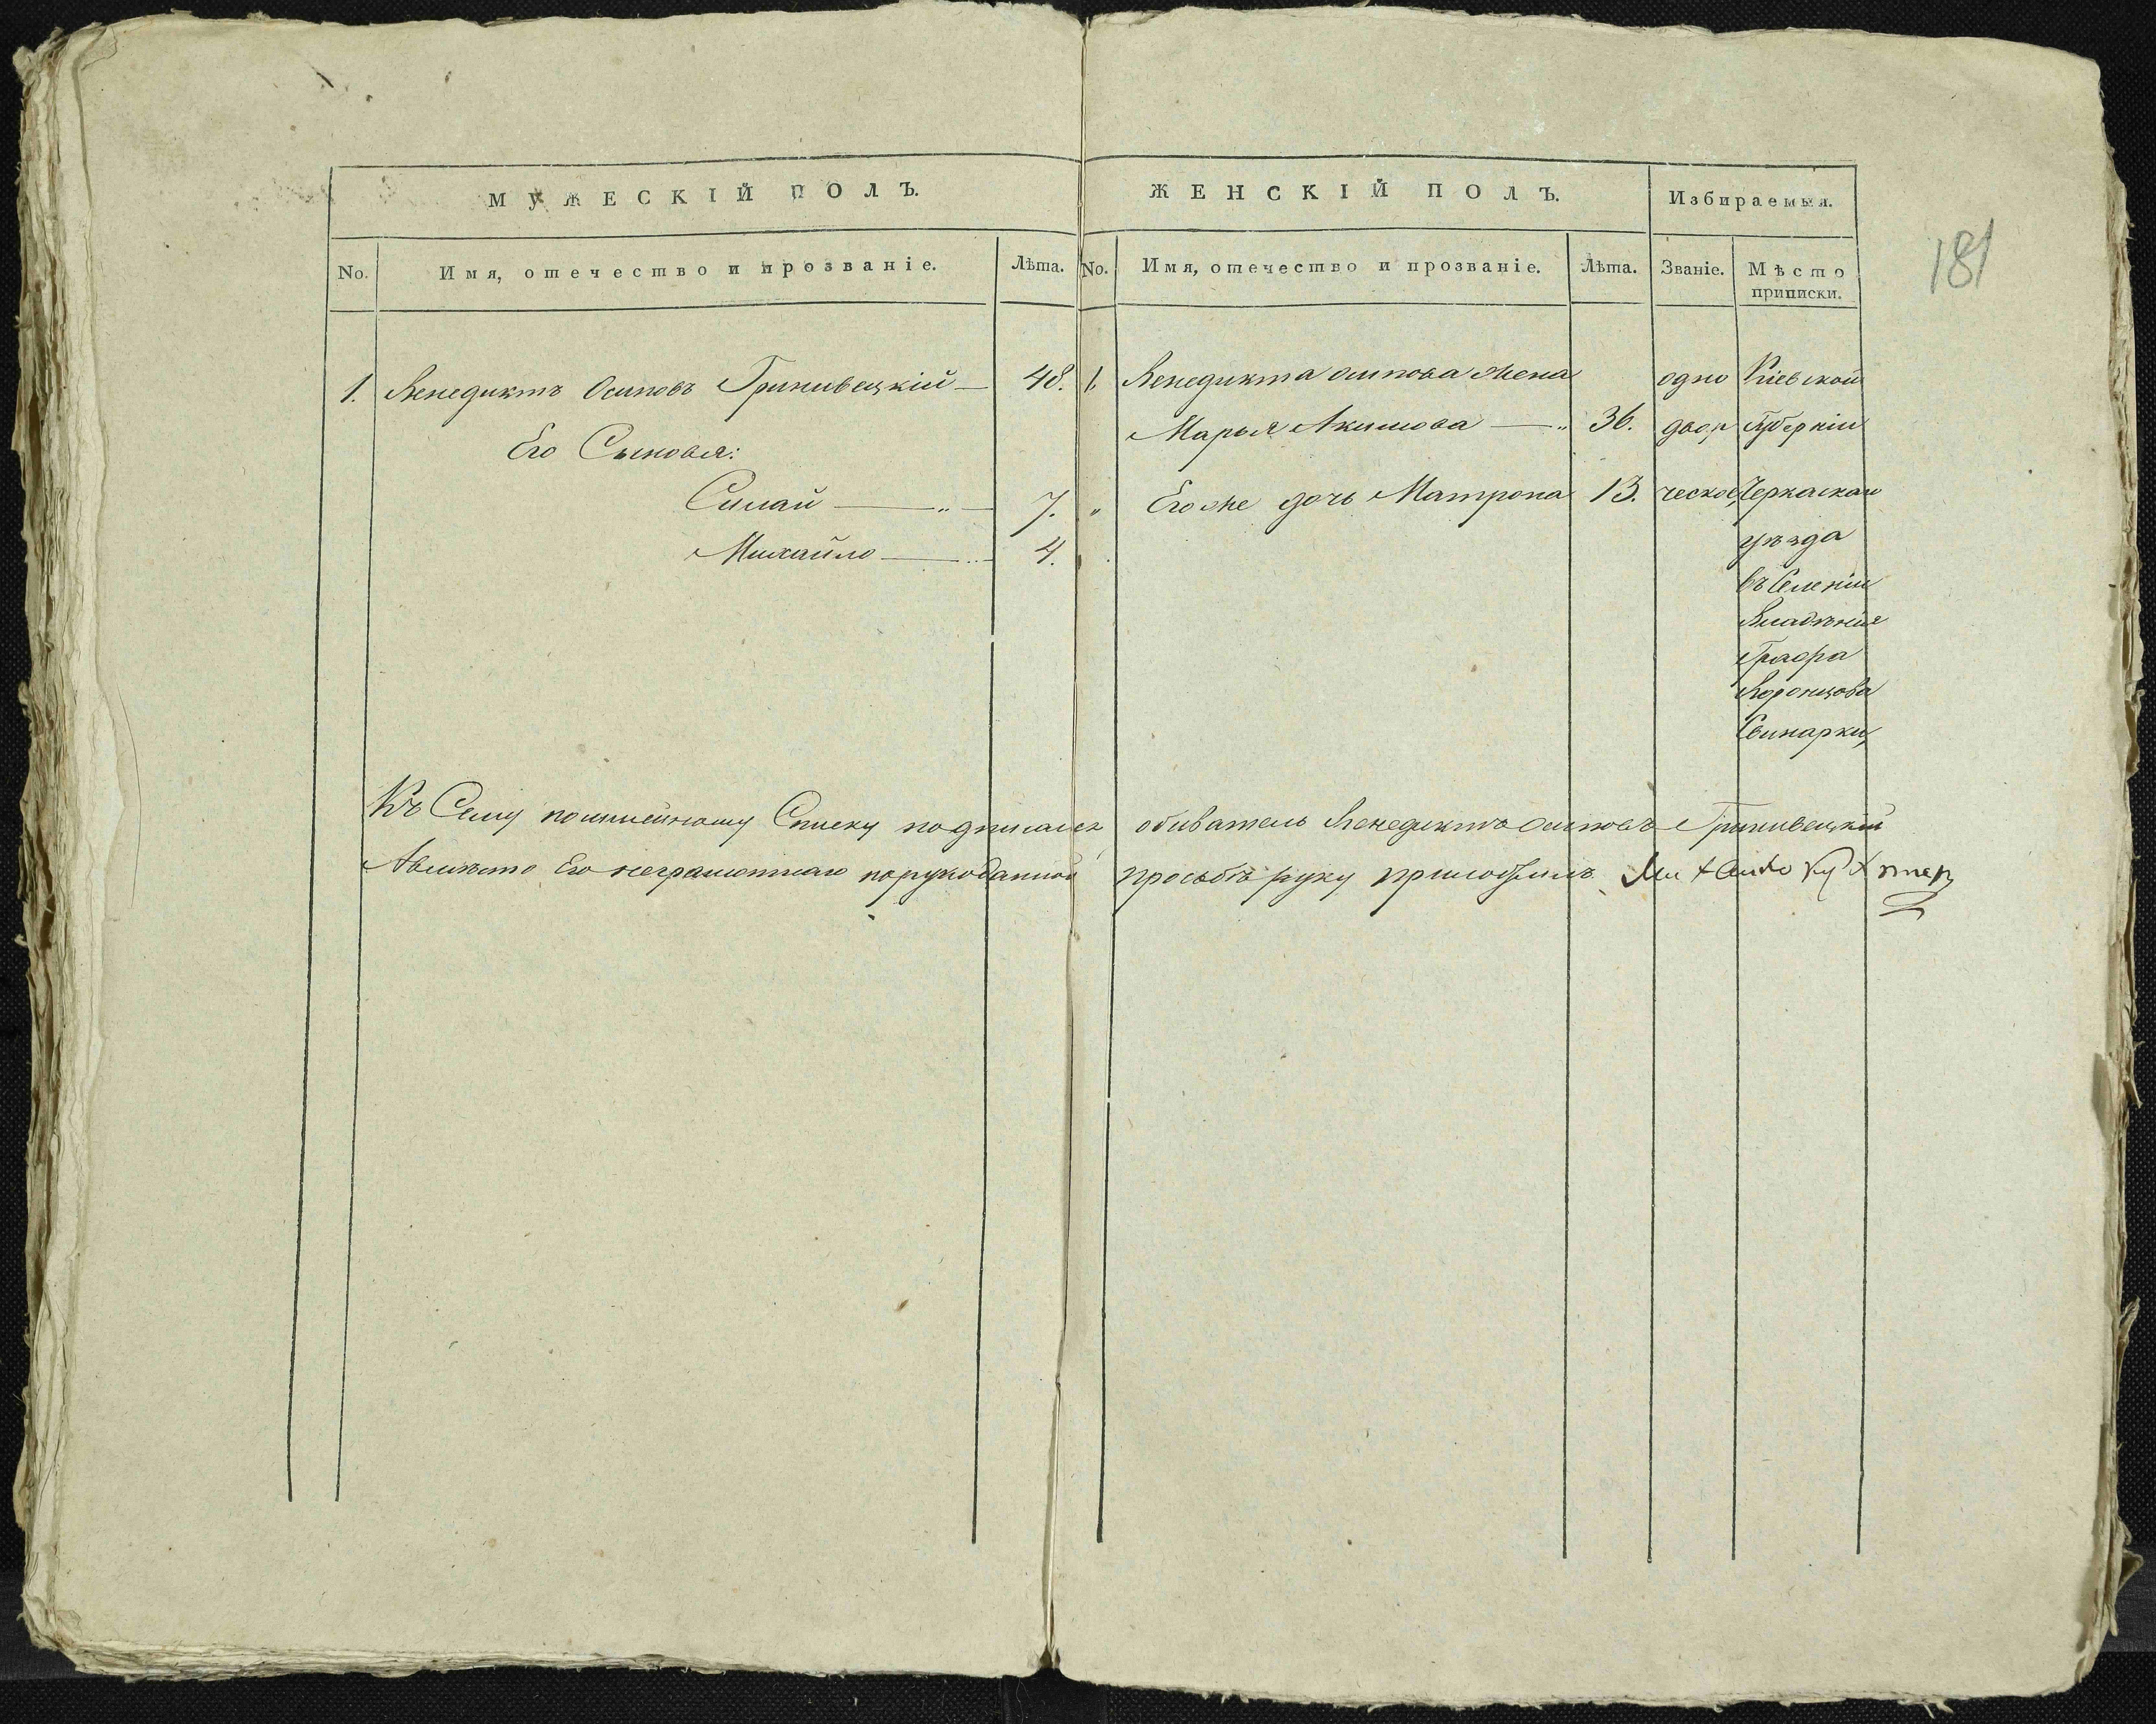 МУЖЕСКІЙ ПОЛЪ.
No. Имя, отечество и прозваніе. Лѣта.
1. Венедиктъ Осиповъ Гринивецкій — 48.
Его Сыновья:
Силай — „ — 7.
Михайло — „ — 4.
ЖЕНСКІЙ ПОЛЪ. Избираемыя.
No. Имя, отечество и прозваніе. Лѣта. Званіе. Мѣсто
приписки.
181
1. Венедикта Осипова Жена одно Кіевской
Марья Акимова — „ 36. двор Губерніи
„ Его же дочь Матрона 13. ческое, Черкаскаго
уѣзда
въ Селеніи
Владѣнія
Графа
Воронцова
Свинарки,
Къ Сему посимейному Списку подписался обиватель Венедиктъ Осиповъ Гринивецкій
Авмѣсто Его неграмотнаго порукоданной прозбѣ руку приложилъ